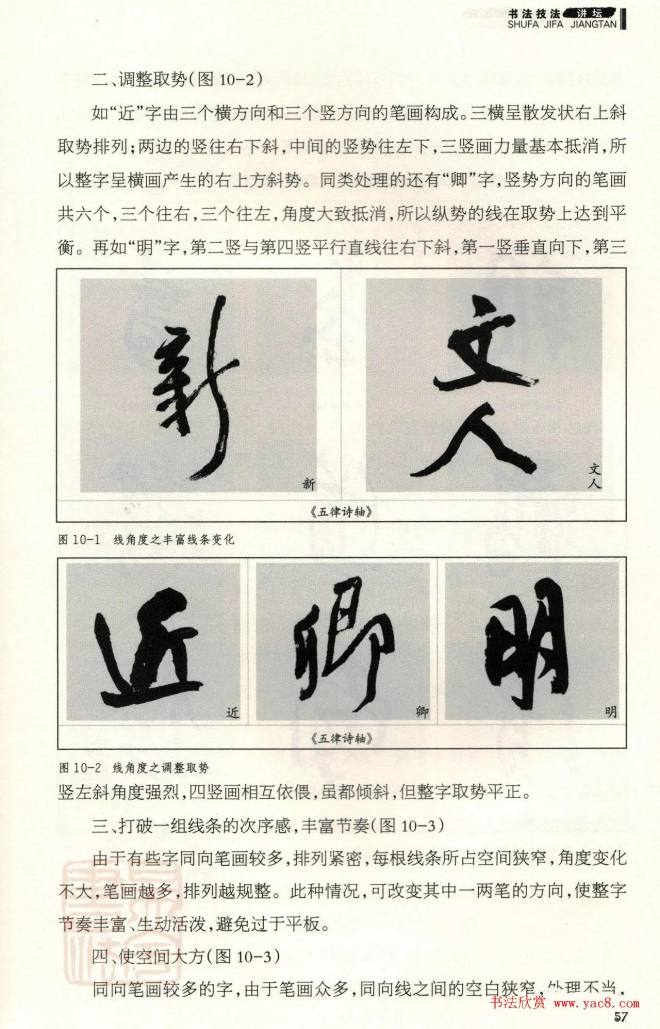 书法技法 讲坛
SHUFA JIFA JIANGTAN
二、调整取势(图 10-2)
如“近”字由三个横方向和三个竖方向的笔画构成。三横呈散发状右上斜
取势排列；两边的竖往右下斜，中间的竖势往左下，三竖画力量基本抵消，所
以整字呈横画产生的右上方斜势。同类处理的还有“卿”字，竖势方向的笔画
共六个，三个往右，三个往左，角度大致抵消，所以纵势的线在取势上达到平
衡。再如“明”字，第二竖与第四竖平行直线往右下斜，第一竖垂直向下，第三
新
文
人
新
文
人
《五律诗轴》
图 10-1 线角度之丰富线条变化
近 卿 明
近 卿 明
《五律诗轴》
图 10-2 线角度之调整取势
竖左斜角度强烈，四竖画相互依偎，虽都倾斜，但整字取势平正。
三、打破一组线条的次序感，丰富节奏(图 10-3)
由于有些字同向笔画较多，排列紧密，每根线条所占空间狭窄，角度变化
不大，笔画越多，排列越规整。此种情况，可改变其中一两笔的方向，使整字
节奏丰富、生动活泼，避免过于平板。
四、使空间大方(图 10-3)
同向笔画较多的字，由于笔画众多，同向线之间的空白狭窄，处理不当，
书法欣赏 www.yac8.com
57